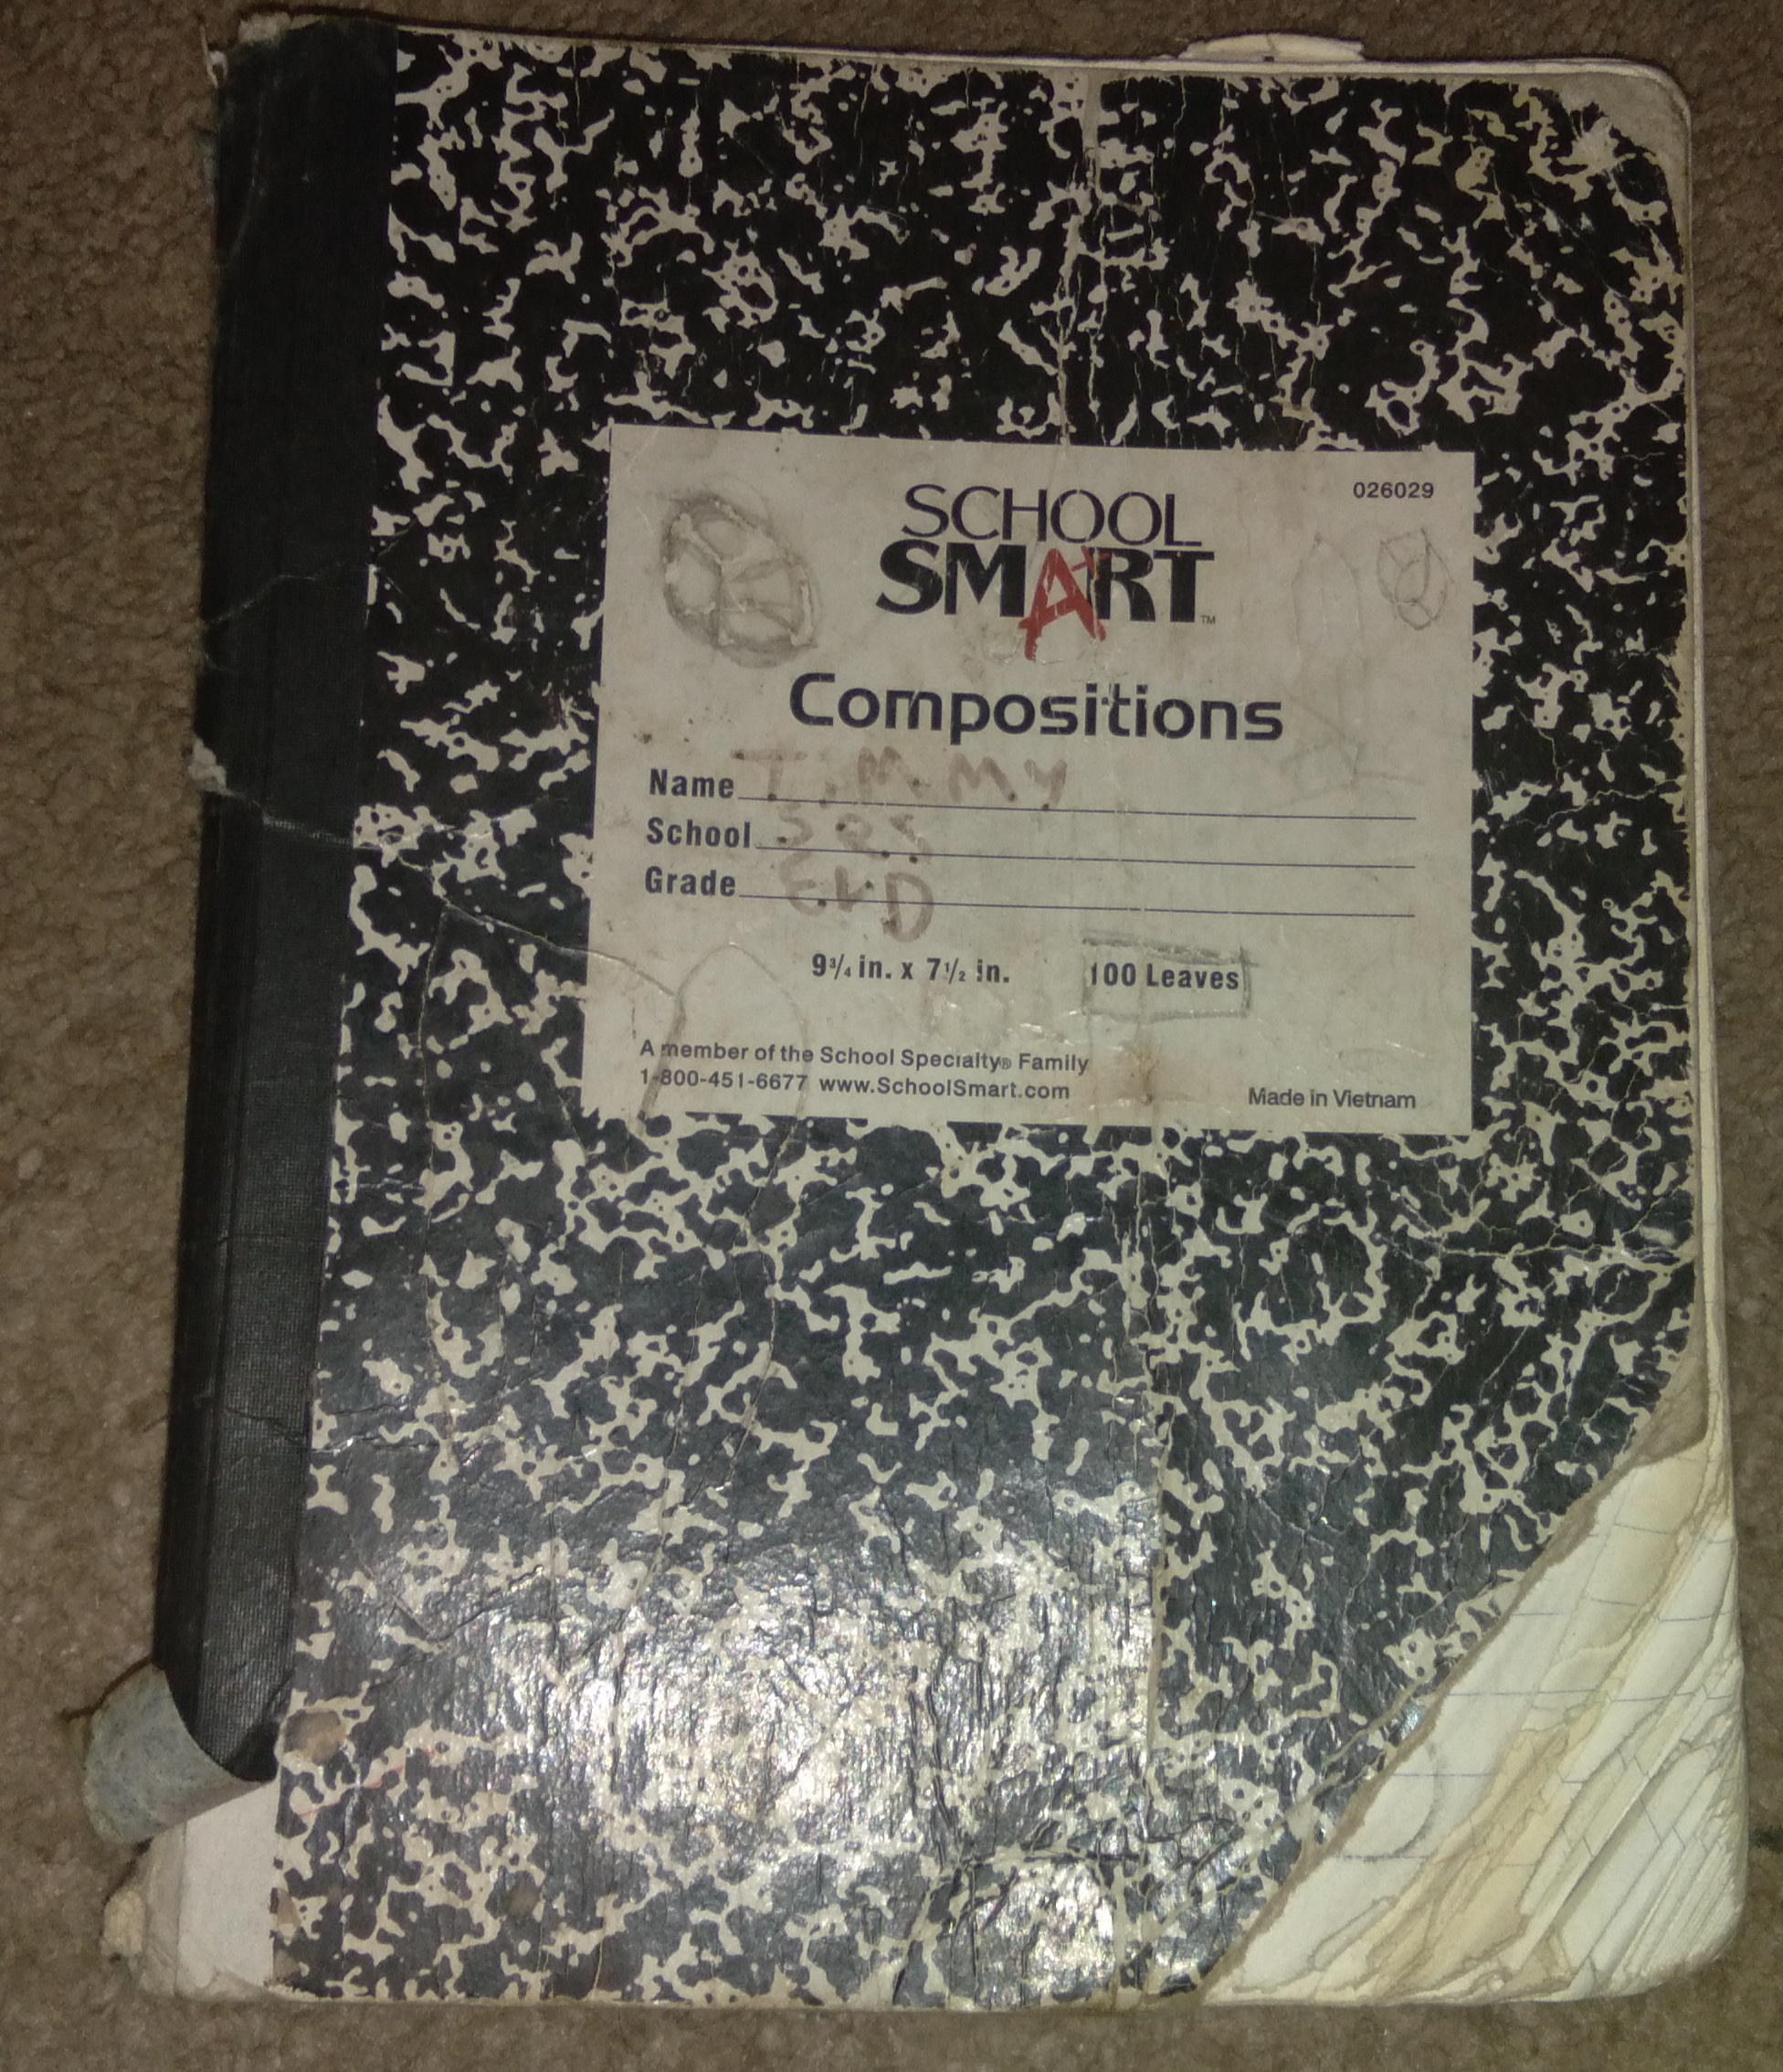 026029
SCHOOL
SMART™
Compositions
Name TiMMY
School
Grade
9¾ in. x 7½ in. 100 Leaves
A member of the School Specialty® Family
1-800-451-6677 www.SchoolSmart.com
Made in Vietnam